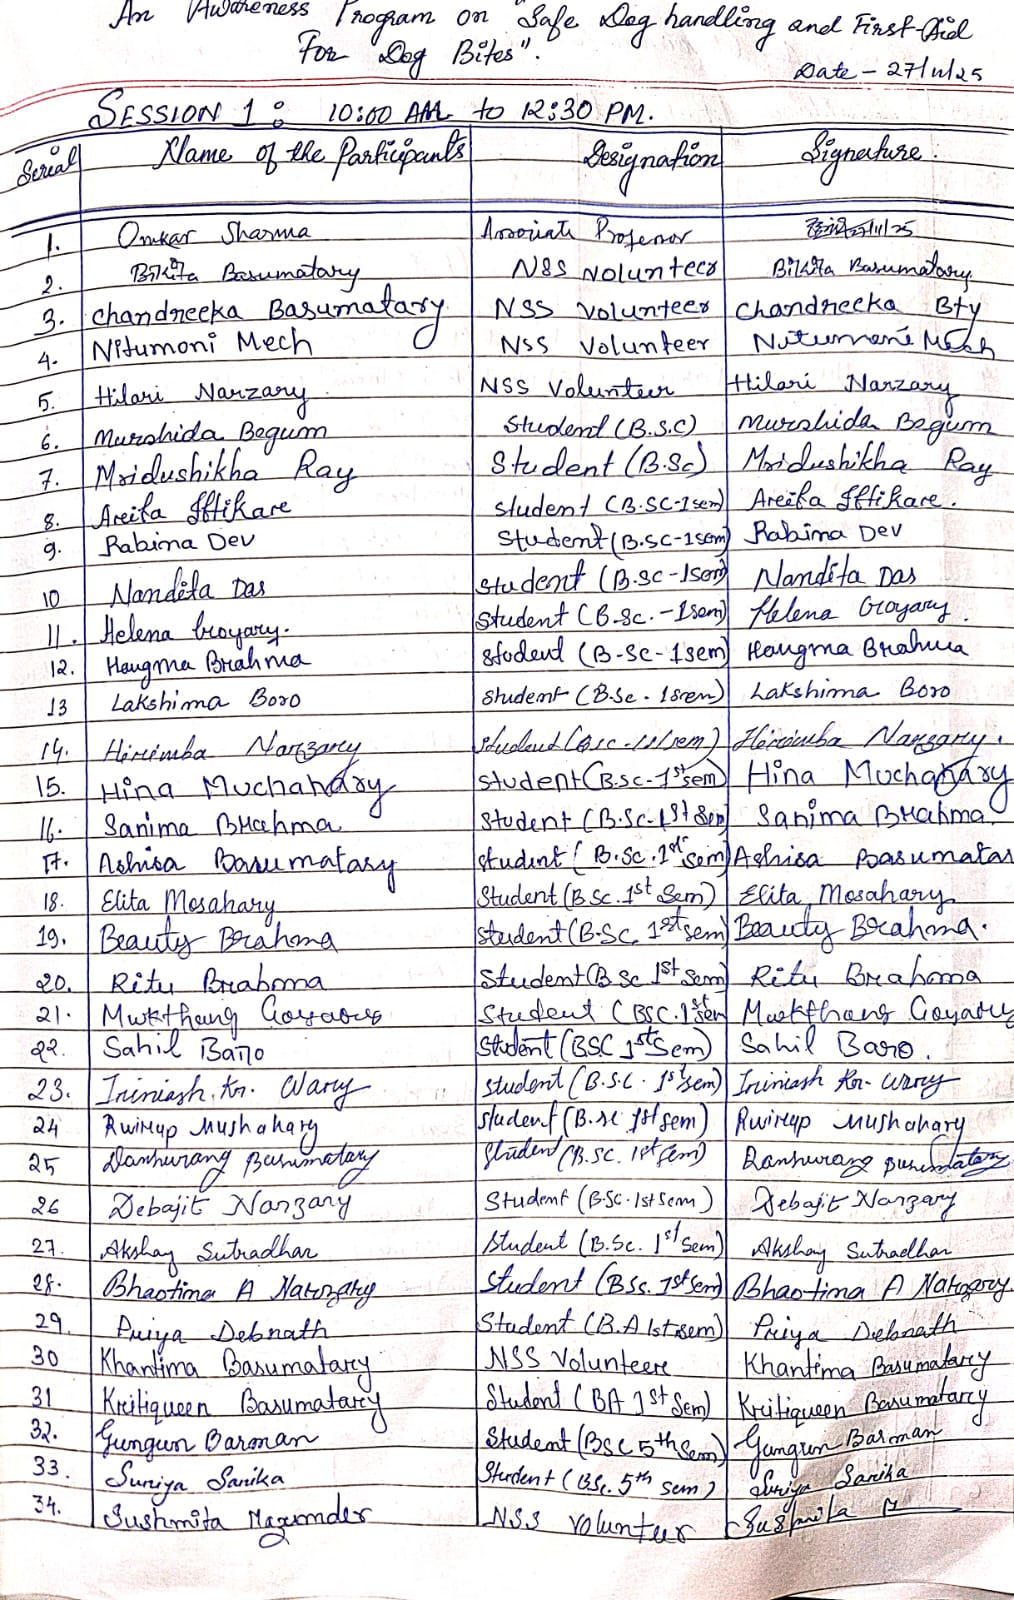 An Awareness Program on "Safe Dog handling and First-Aid
For Dog Bites".
Date - 27/11/25
SESSION 1 : 10:00 AM to 12:30 PM.
Serial Name of the Participants Designation Signature
1. Omkar Sharma Associate Professor 27/11/25
2. Basumatary NSS volunteer Basumatary
3. Chandreeka Basumatary NSS Volunteer Chandreeka Bty
4. Nitumoni Mech NSS Volunteer Nitumoni Mech
5. Hilari Narzary NSS Volunteer Hilari Narzary
6. Murshida Begum Student (B.S.C) Murshida Begum
7. Mridushikha Ray Student (B.Sc) Mridushikha Ray
8. Areifa Iftikare Student (B.SC-1sem) Areifa Iftikare.
9. Rabina Dev Student (B.SC-1sem) Rabina Dev
10 Nandita Das Student (B.Sc-1sem) Nandita Das
11. Helena Goyary. Student (B.Sc.-1sem) Helena Goyary.
12. Haugma Brahma Student (B-Sc-1sem) Haugma Brahma
13 Lakshima Boro Student (B.Sc. 1sem) Lakshima Boro
14. Hirimba Narzary Student (B.sc-1st sem) Hirimba Narzary.
15. Hina Muchahary Student (B.Sc-1st sem) Hina Muchahary
16. Sanima Brahma Student (B.Sc-1st Sem Sanima Brahma
17. Ashisa Basumatary Student (B.Sc.1st sem) Ashisa Basumatar
18. Elita Mosahary Student (B Sc. 1st Sem) Elita Mosahary
19. Beauty Brahma Student (B.Sc. 1st sem) Beauty Brahma.
20. Ritu Brahma Student (B Sc 1st Sem) Ritu Brahma
21. Mwkthang Goyary Student (BSC.1st sem Mwkthang Goyary
22. Sahil Baro Student (BSC 1st Sem) Sahil Baro.
23. Iriniash Kr. Wary Student (B.S.C. 1st sem) Iriniash Kr. Wary
24 Rwirup Mushahary Student (B.sc 1st sem) Rwirup Mushahary
25 Danhurang Basumatary Student (B.SC. 1st sem) Danhurang Basumatary
26 Debajit Narzary Student (B.Sc. 1st Sem) Debajit Narzary
27. Akshay Sutradhar Student (B.Sc. 1st Sem) Akshay Sutradhar
28. Bhaotima A Narzary Student (BSc. 1st Sem) Bhaotima A Narzary.
29. Priya Debnath Student (B.A 1st sem) Priya Debnath
30 Khantima Basumatary NSS Volunteer Khantima Basumatary
31 Kritiqueen Basumatary Student (BA 1st Sem) Kritiqueen Basumatary
32. Gungun Barman Student (BSC 5th Sem) Gungun Barman
33. Suriya Sarika Student (BSc. 5th sem) Suriya Sarika
34. Sushmita Mazumder NSS Volunteer Sushmita M